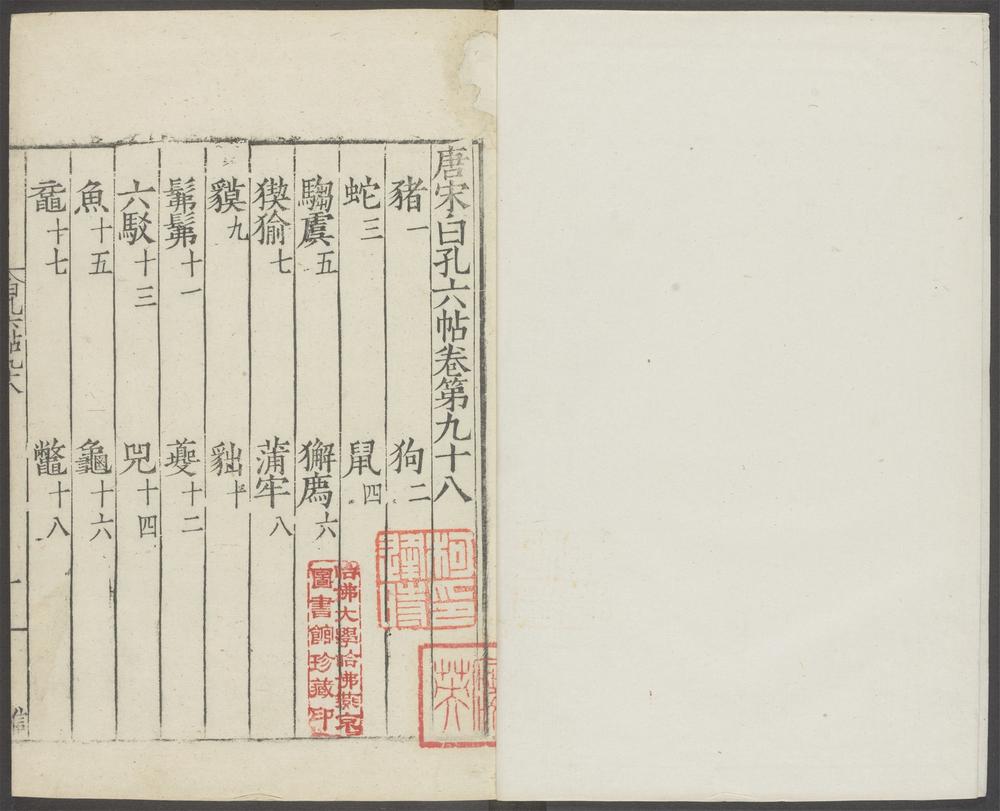 唐宋白孔六帖卷第九十八
豬一 狗二
蛇三 鼠四
騶虞五 獬廌六
猰㺄七 蒲牢八
貘九 貀十
髴髴十一 夔十二
六駁十三 兕十四
魚十五 龜十六
黿十七 鼈十八
白孔六帖九十八
一
信
哈佛大學哈佛燕京
圖書館珍藏印